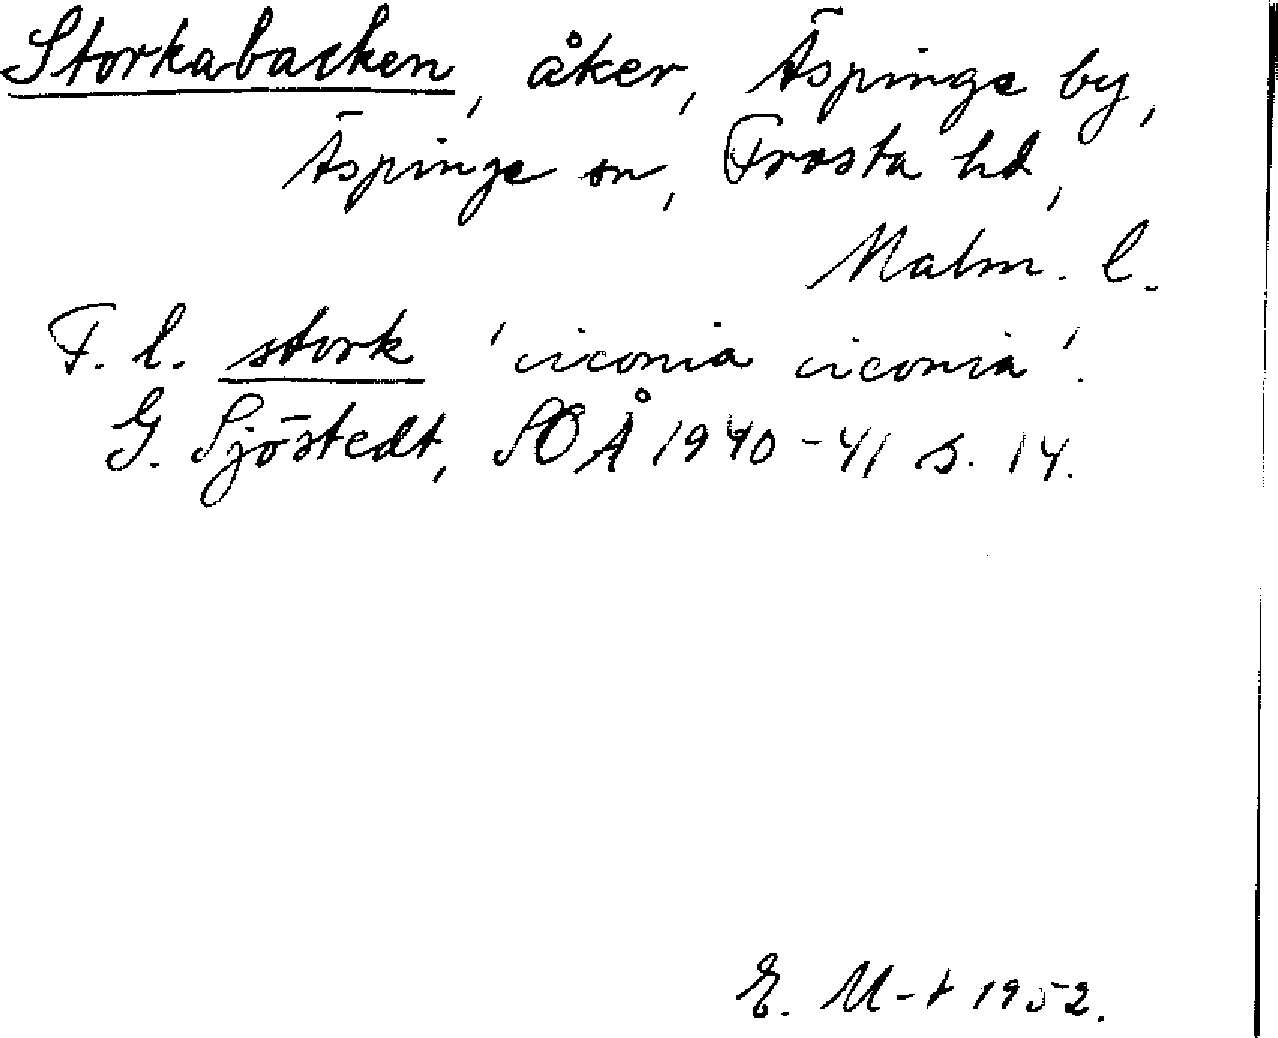 Storkabacken, åker, Äspinge by,
Äspinge sn, Frosta hd,
Malm. l.
F. l. stork 'ciconia ciconia'.
G. Sjöstedt, SOÅ 1940-41 s. 14.
E. M-t 1952.